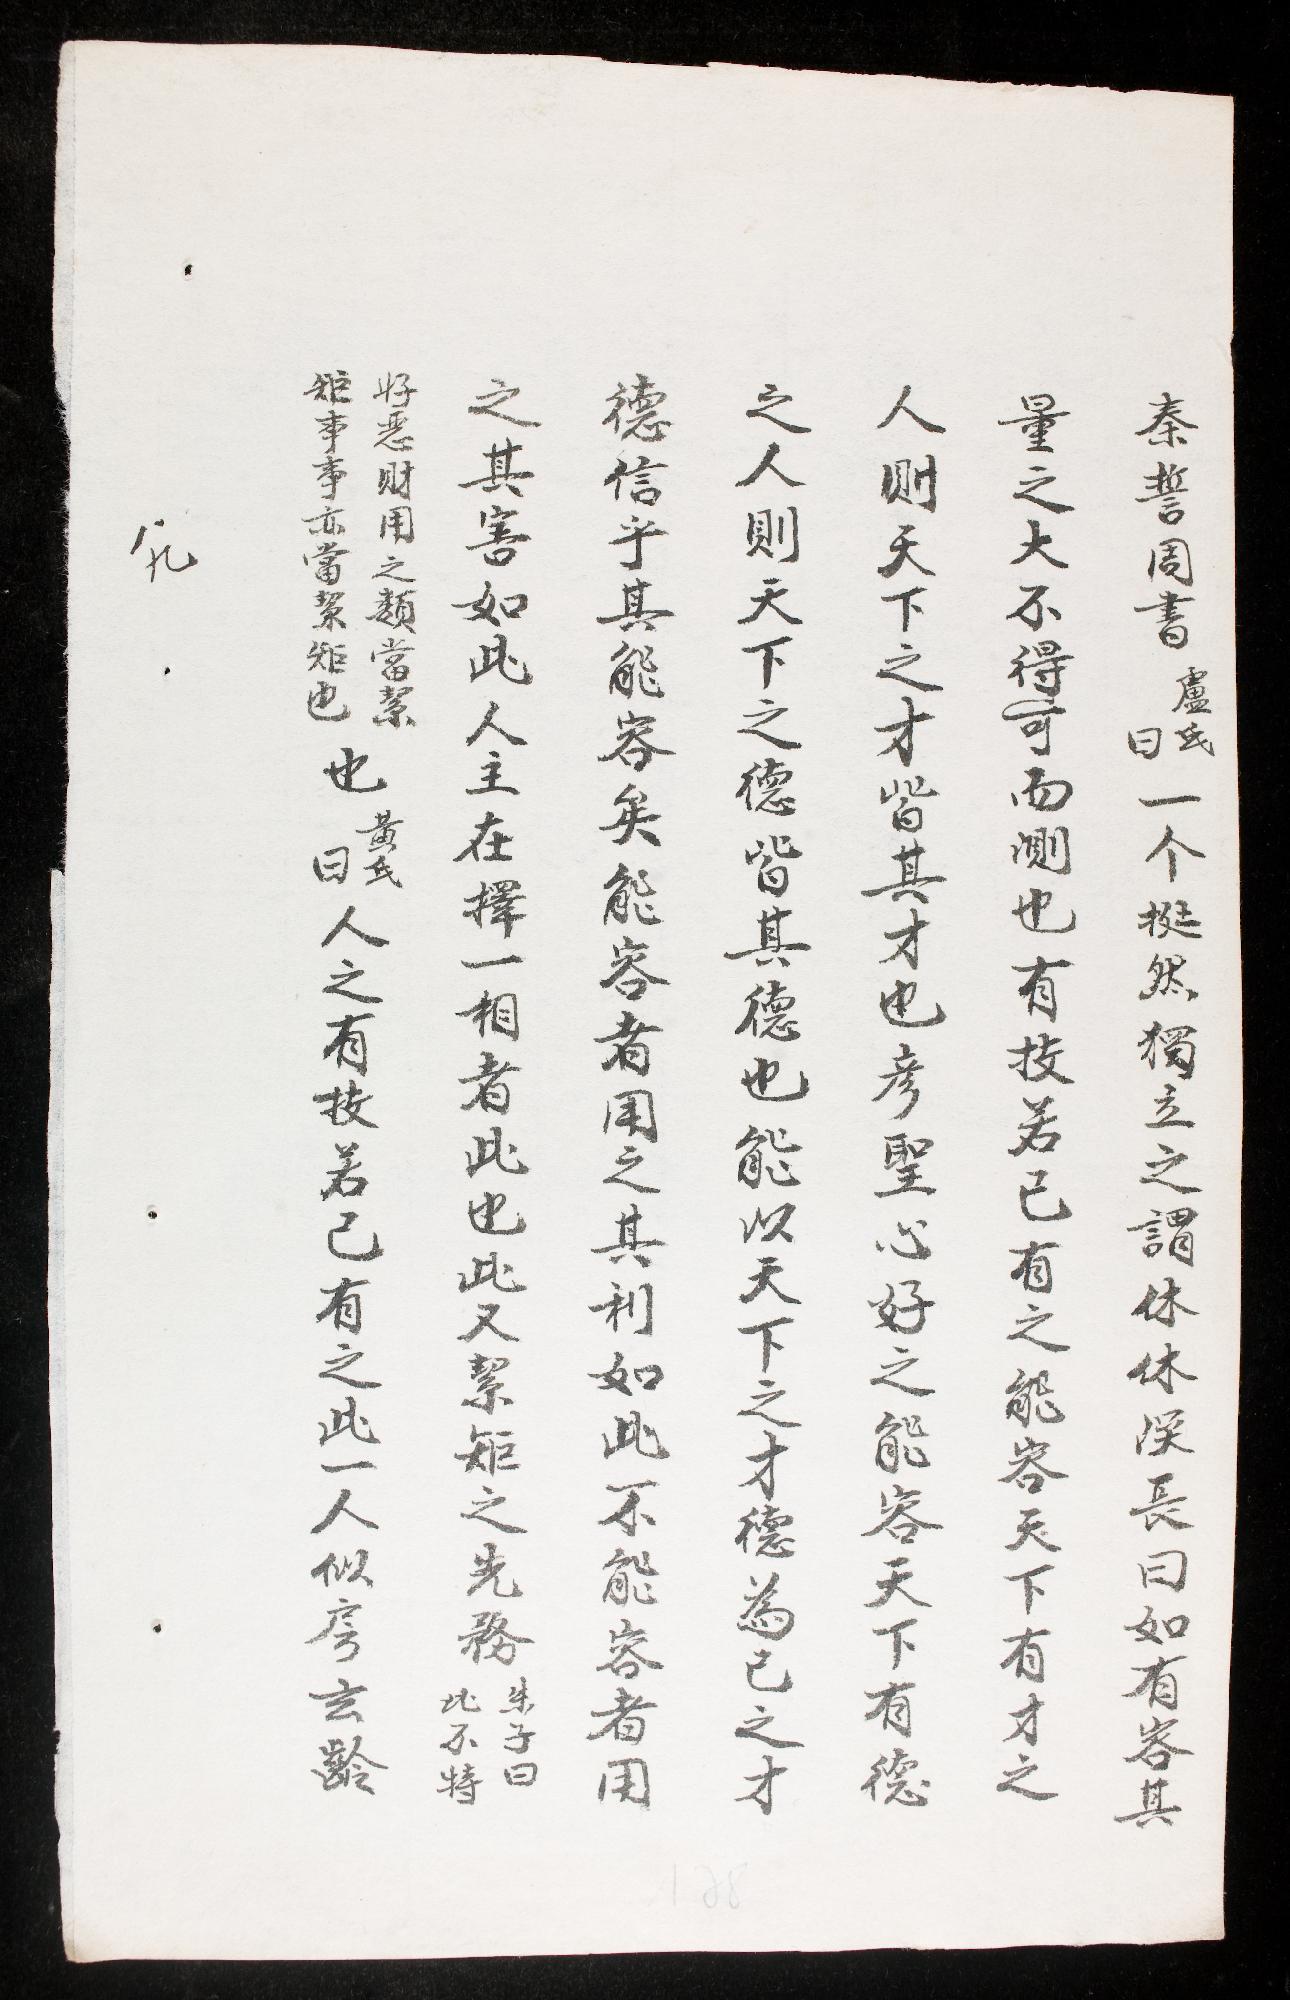 秦誓周書盧氏曰一个挺然獨立之謂休休深長曰如有容其
量之大不得可而測也有技若己有之能容天下有才之
人則天下之才皆其才也彦聖心好之能容天下有德
之人則天下之德皆其德也能以天下之才德為己之才
德信乎其能容矣能容者用之其利如此不能容者用
之其害如此人主在擇一相者此也此又絜矩之先務朱子曰此不特
好惡財用之類當絜矩事事亦當絜矩也也黃氏曰人之有技若己有之此一人似房玄齡
八九
128